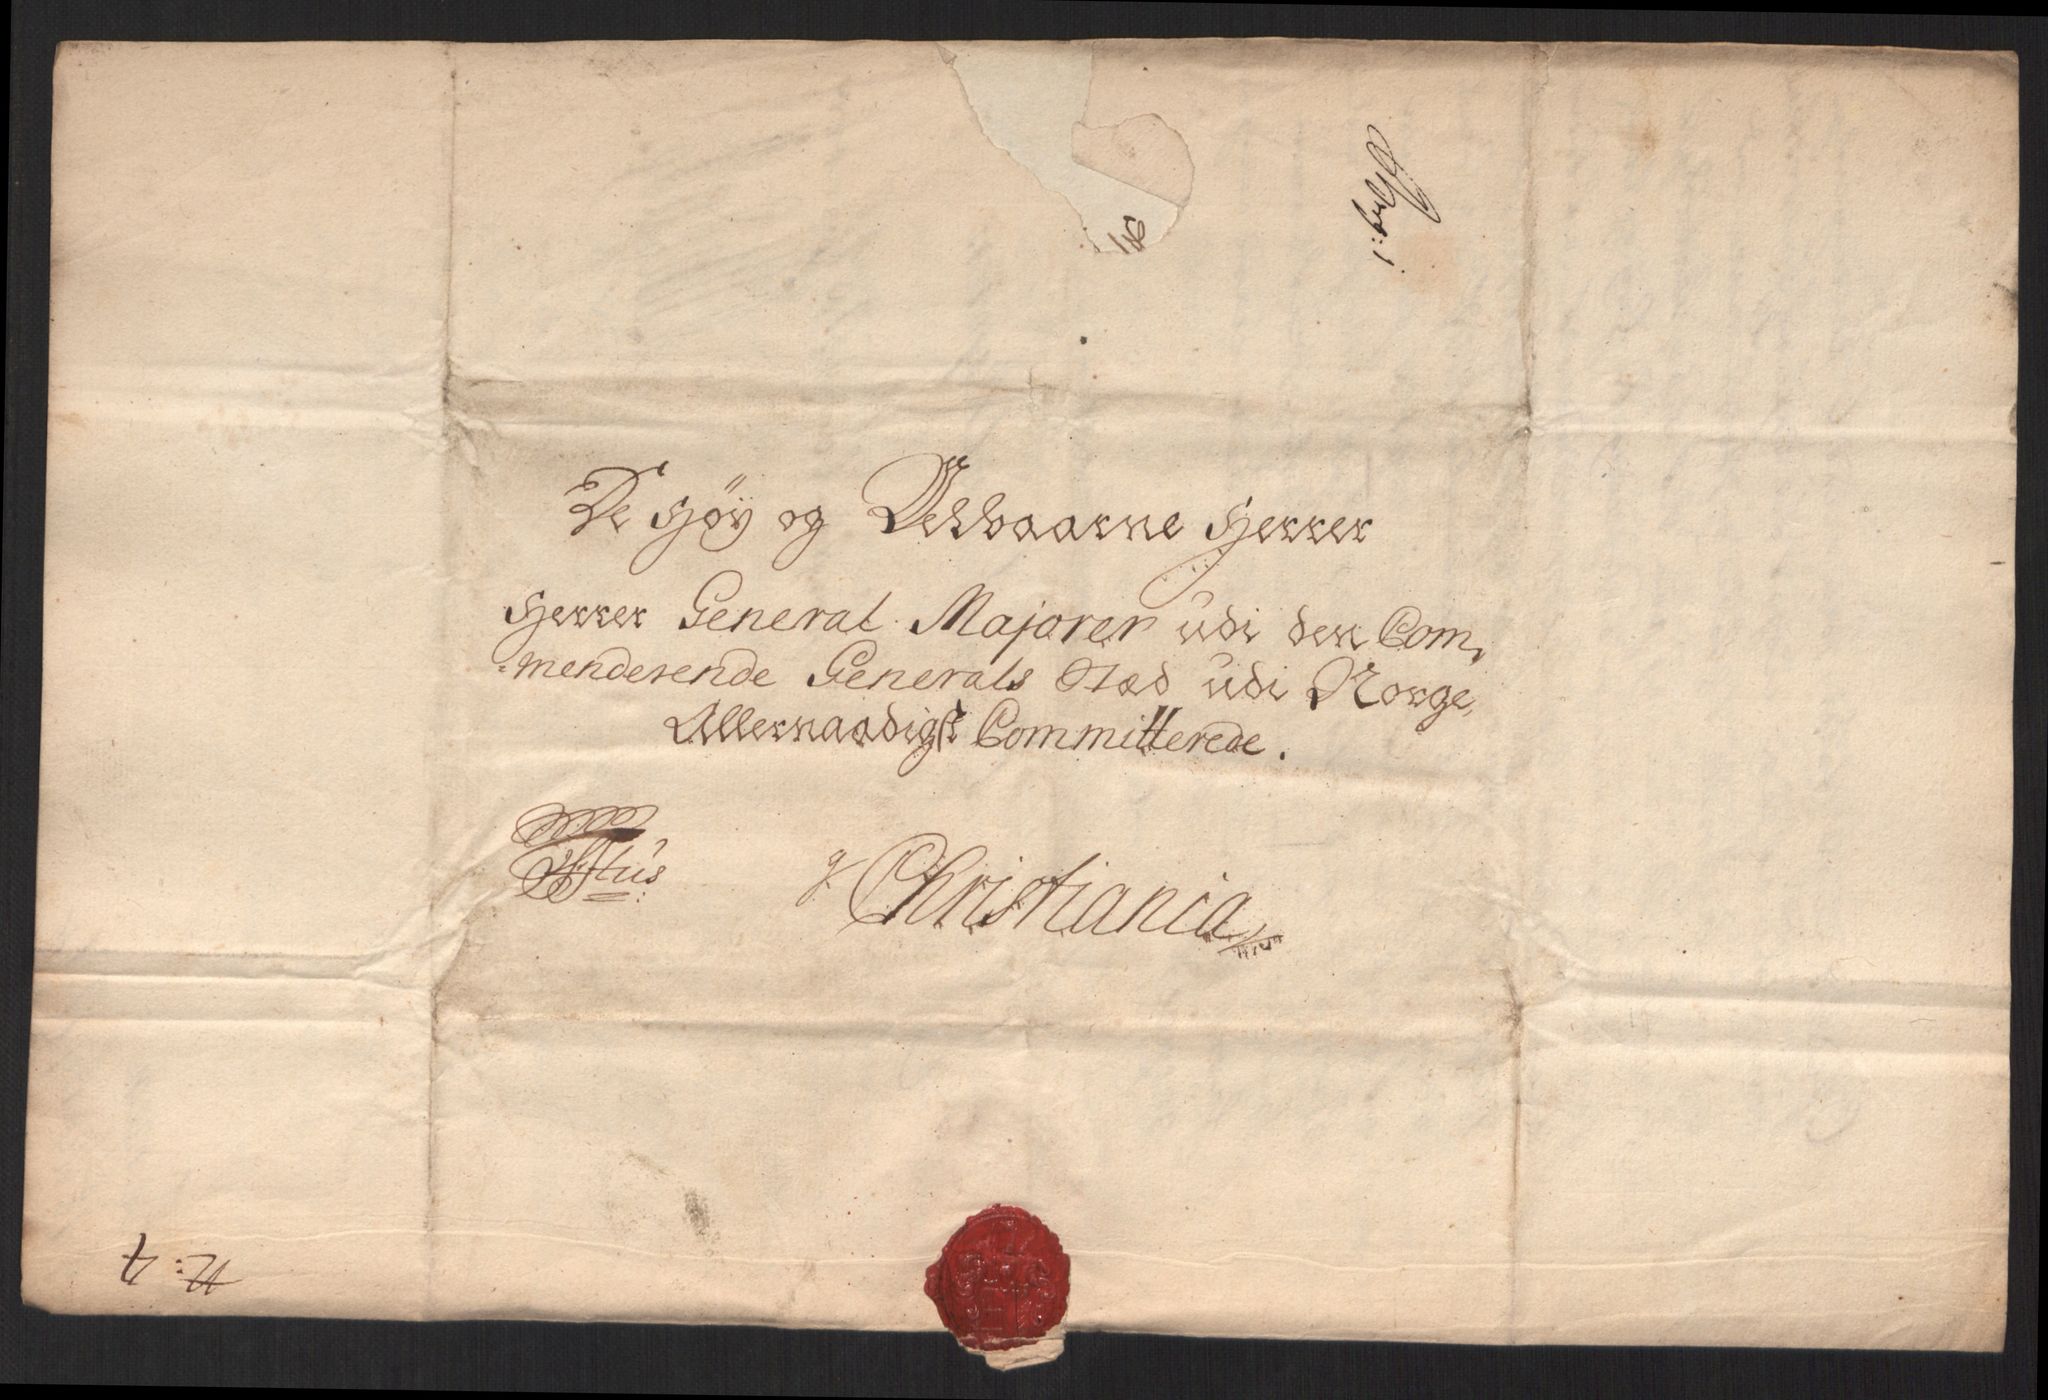 De Høy og Velbaarne Herrer
Herrer General Majorer udi den Com,
=menderende Generals Stæd udi Norge,
Allernaadigst Committerede.
Tittus
Christiania